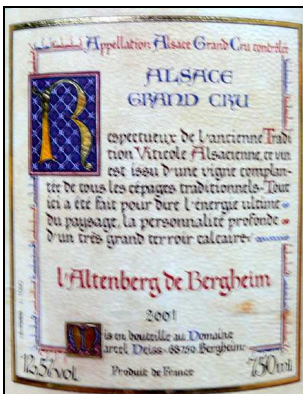 Appellation Alsace Grand Cru contrôlée
ALSACE
GRAND CRU
Respectueux de l'ancienne Tradi
tion Viticole Alsacienne, ce vin
est issu d'une vigne complan-
tée de tous les cépages traditionnels. Tout
ici a été fait pour dire l'énergie ultime
du paysage, la personnalité profonde
d'un très grand terroir calcaire.
l'Altenberg de Bergheim
2001
Mis en bouteille au Domaine
Marcel Deiss - 68750 Bergheim
12,5% vol. Produit de France 750 ml